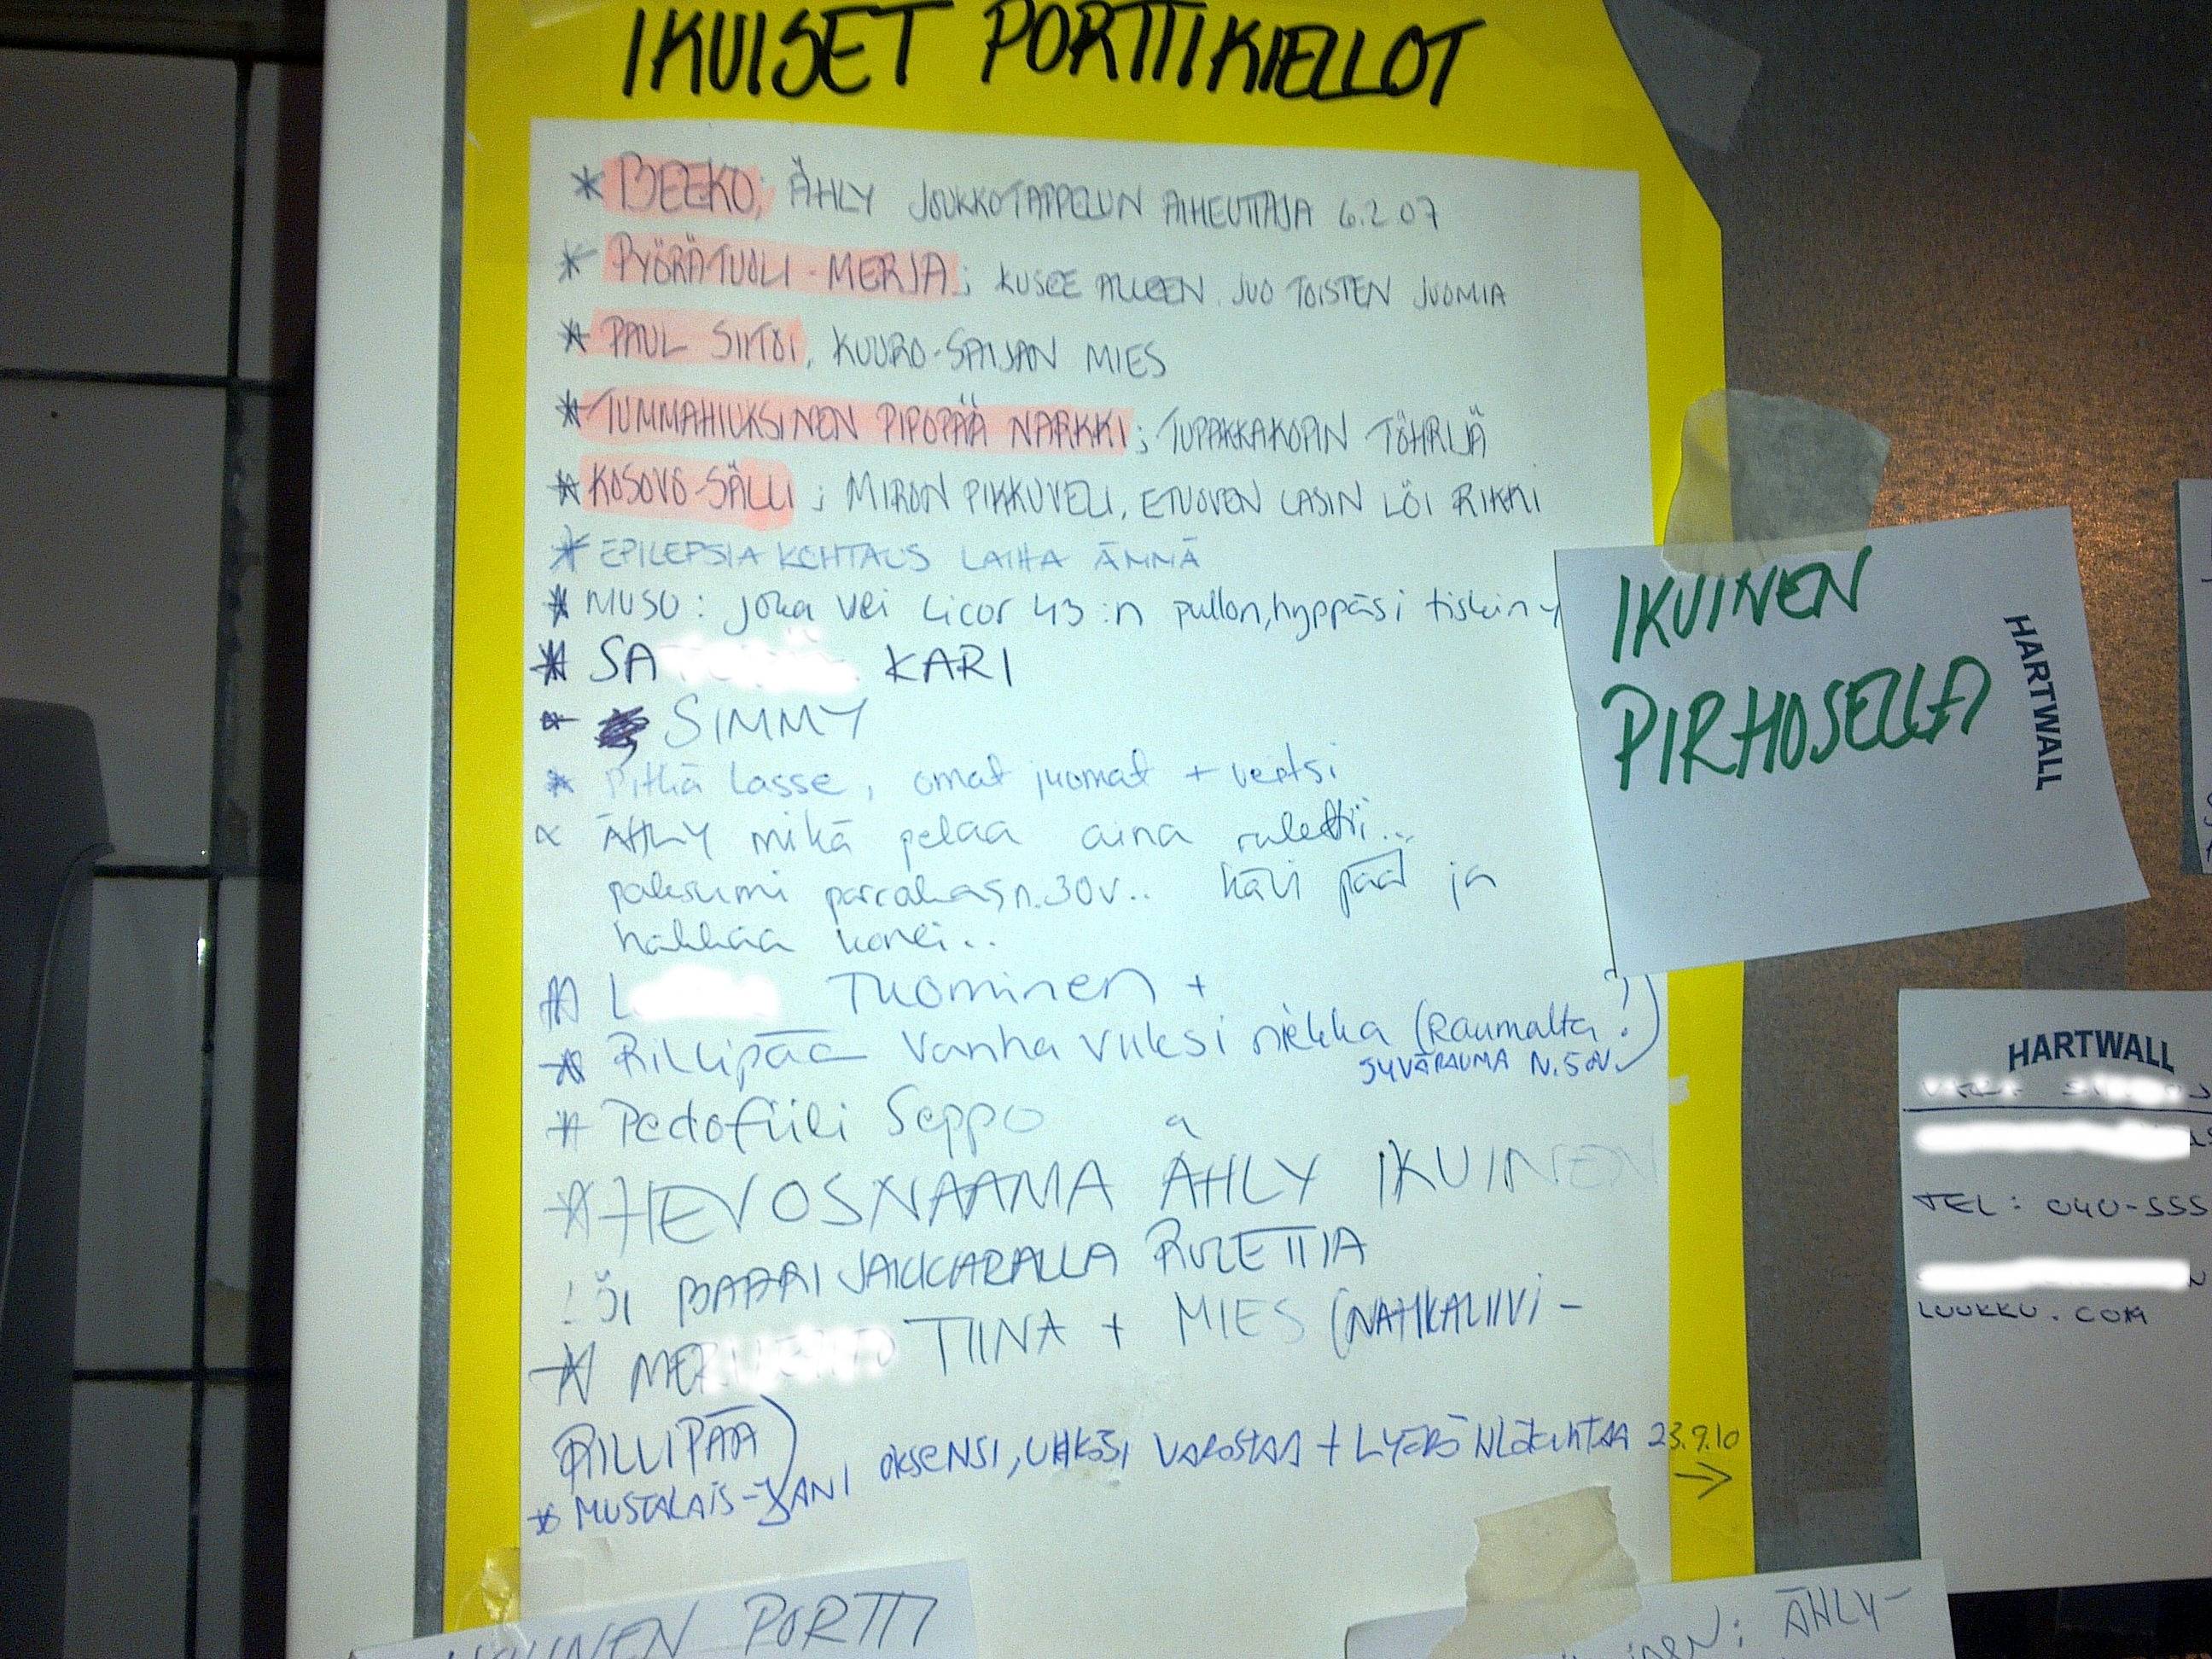 IKUISET PORTTIKIELLOT
* BEEKO; ÄHLY JOUKKOTAPPELUN AIHEUTTAJA 6.2.07
* PYÖRÄTUOLI-MERJA; KUSEE ALLEEN. JUO TOISTEN JUOMIA
* PAUL SIITOI, KUURO-SAIJAN MIES
* TUMMAHIUKSINEN PIPOPÄÄ NARKKI; TUPAKKAKOPIN TÖHRIJÄ
* KOSOVO-SÄLLI; MIRON PIKKUVELI, ETUOVEN LASIN LÖI RIKKI
* EPILEPSIA KOHTAUS LAIHA ÄMMÄ
* MUSU: joka vei Licor 43:n pullon, hyppäsi tiskin y
* SA KARI
* SIMMY
* Pitkä Lasse, omat juomat + vertsi
* ÄHLY mikä pelaa aina rulettii...
paksumi parrakas n.30v.. kävi pääl ja
hakkaa konei..
* L Tuominen +
* Rillipää vanha viiksi niekka (Raumalta?!)
SYVÄRAUMA N. 50V.
* Pedofiili Seppo
* HEVOSNAAMA ÄHLY IKUINEN
LÖI BAARIJAKKARALLA RULETTIA
* ME TIINA + MIES (NAHKALIIVI-
RILLIPÄÄ)
* MUSTALAIS-JANI OKSENSI, UHKASI VAROSTAA + LYÖDÄ HLÖKUNTAA 23.9.10
→
IKUINEN
PIRHOSELLA
HARTWALL
HARTWALL
TEL: 040-555
LUUKKU.COM
PORTTI
ÄHLY-